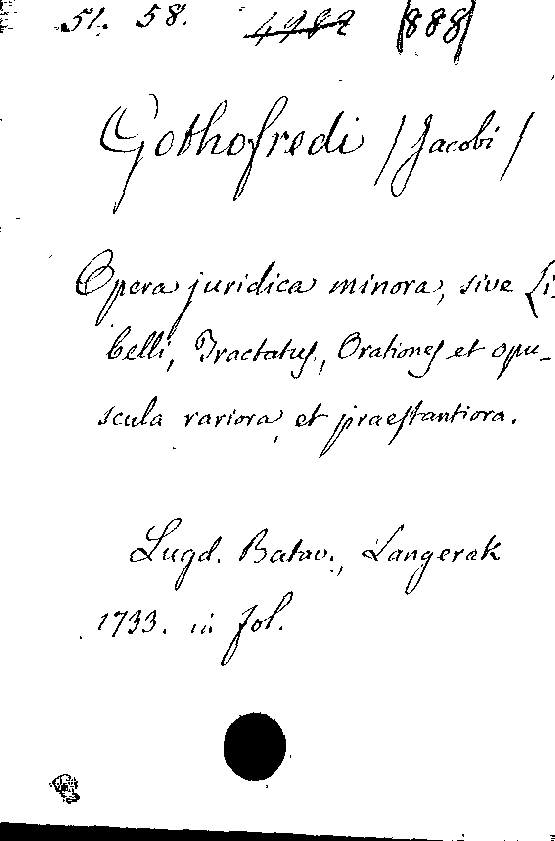 51. 58. 4982 (888)
Gothofredi /Jacobi/
Opera juridica minora, sive Li-
belli, Tractatus, Orationes et opu-
scula rariora et praestantiora.
Lugd. Batav., Langerak
1733. in fol.